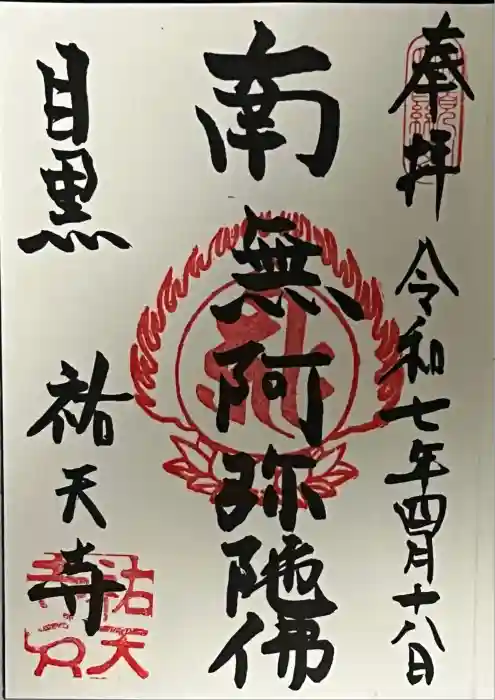 奉拝 令和七年四月十八日
南無阿弥陀佛
目黒 祐天寺
祐天寺